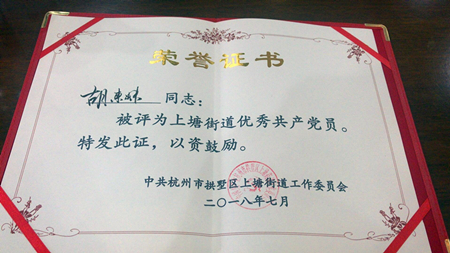 荣誉证书
胡东妹 同志：
被评为上塘街道优秀共产党员。
特发此证，以资鼓励。
中共杭州市拱墅区上塘街道工作委员会
二〇一八年七月